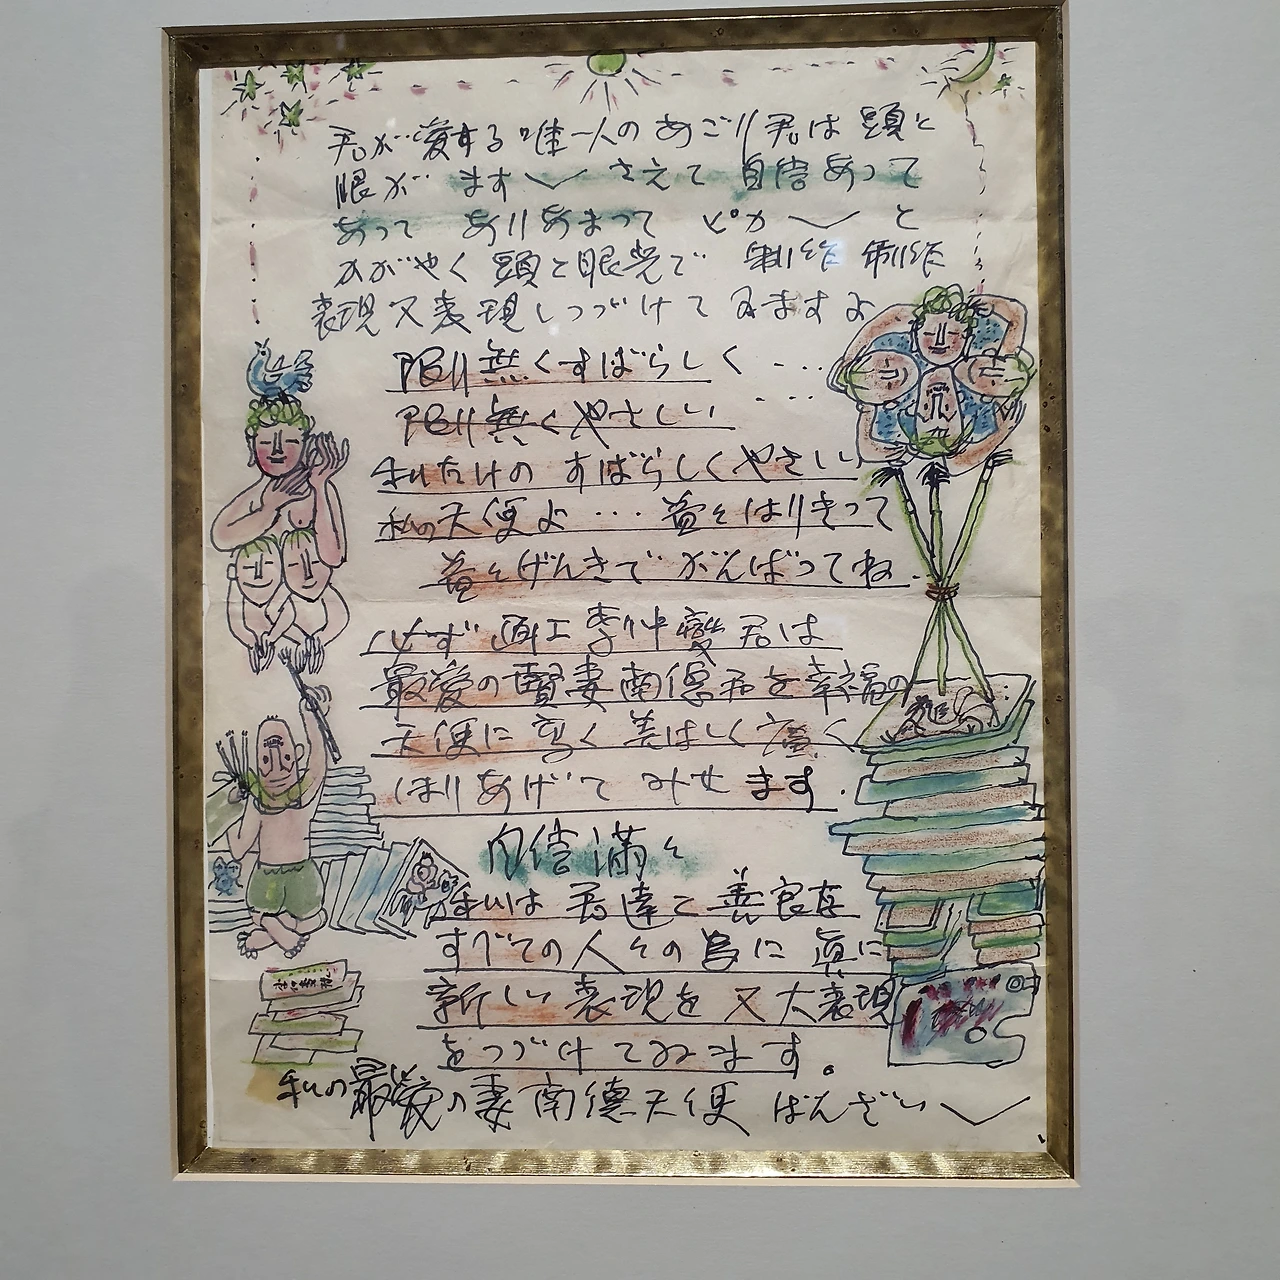 君が愛する唯一人のあごり君は頭と
眼が ます〱 さえて 自信あって
あって ありあまって ピカ〱 と
かがやく 頭と眼光で 制作 制作
表現又表現しつづけて みますよ
限り無くすばらしく ・・・
限り無くやさしい ・・・
私だけの すばらしくやさしい
私の天使よ ・・・ 益々はりきって
益々げんきで がんばってね.
必ず 画工 李仲燮君は
最愛の賢妻南徳君を幸福の
天使に 高く 美しく 広く
ほりあげて みせ ます.
自信満々
私は 君達と 善良な
すべての人々の為に 真に
新しい 表現を 又 大表現
をつづけてみます。
私の最愛の妻南徳天使 ばんざい〱